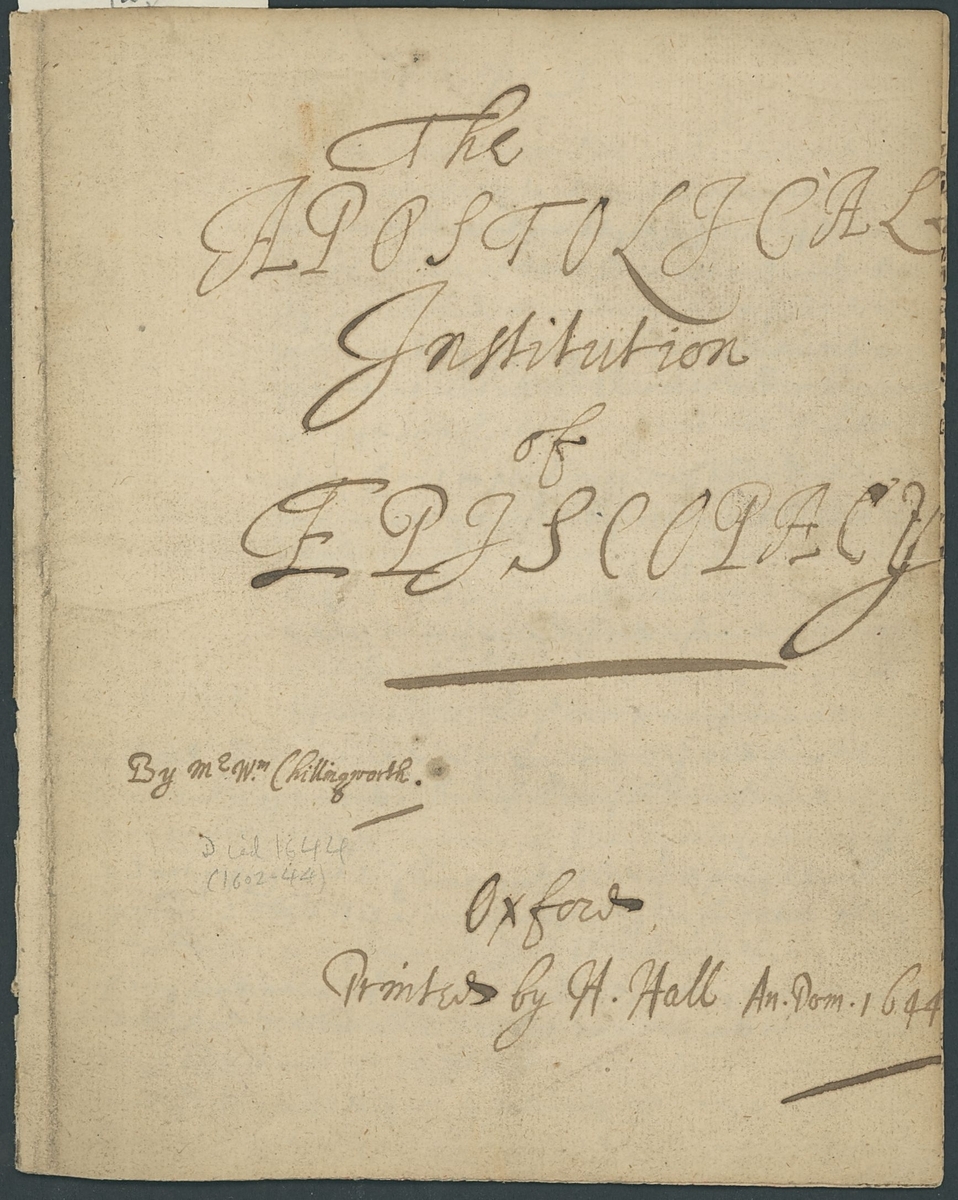 The
APOSTOLICAL
Institution
of
EPISCOPACY
By Mr. Wm. Chillingworth.
Died 1644
(1602-44)
Oxford,
Printed by H. Hall An. Dom. 1644